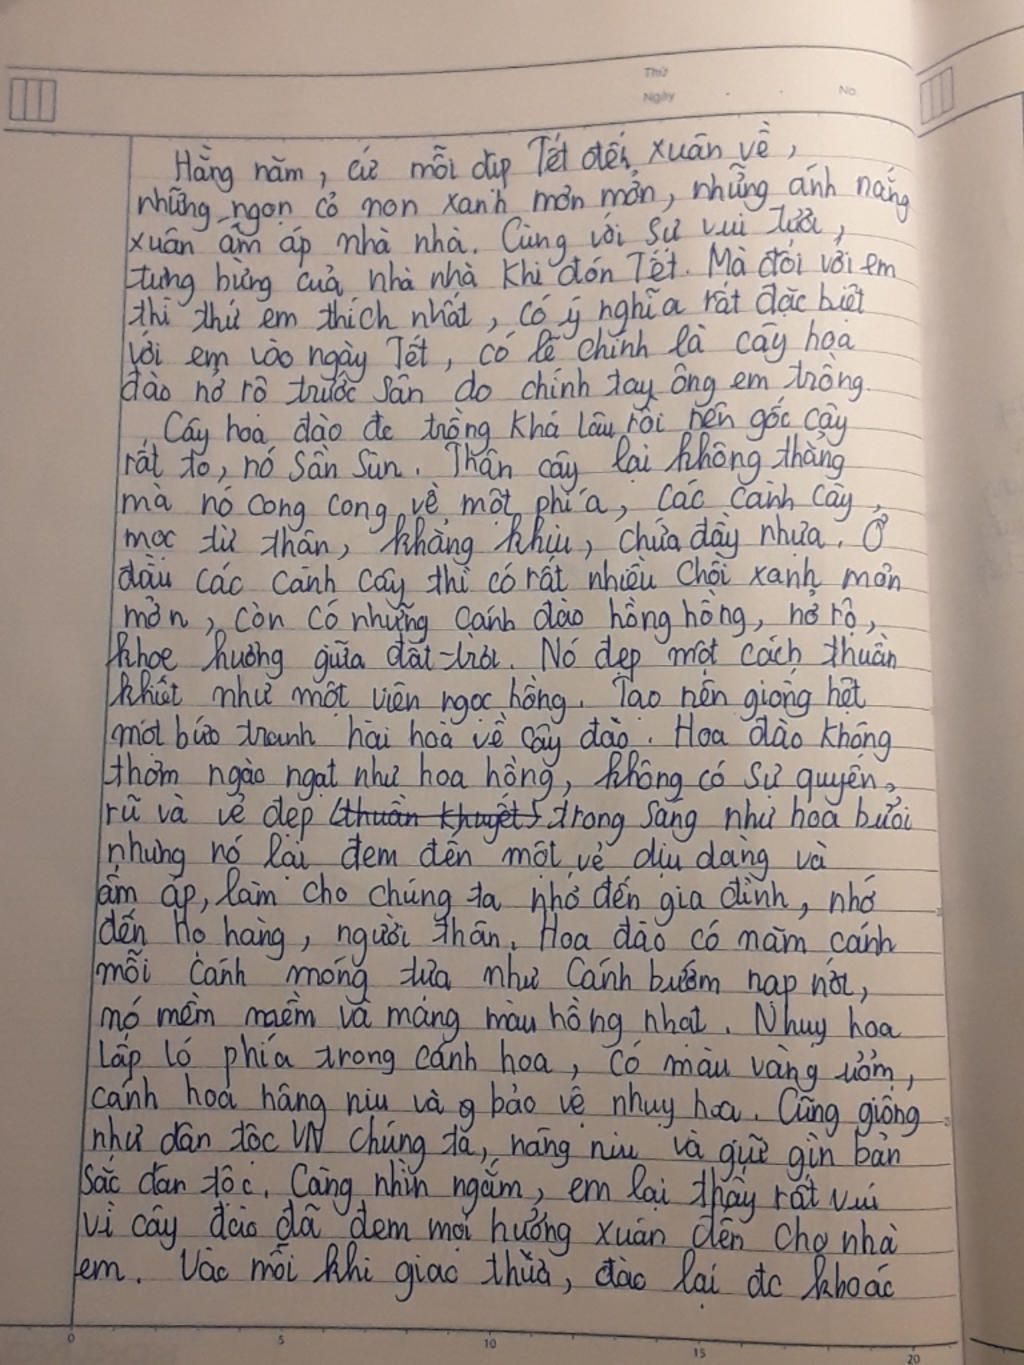 Thứ
Ngày . . No.
Hằng năm, cứ mỗi dịp Tết đến, xuân về,
những ngọn cỏ non xanh mơn mởn, những ánh nắng
xuân ấm áp nhà nhà. Cùng với sự vui tươi,
tưng bừng của nhà nhà khi đón Tết. Mà đối với em
thì thứ em thích nhất, có ý nghĩa rất đặc biệt
với em vào ngày Tết, có lẽ chính là cây hoa
đào nở rộ trước sân do chính tay ông em trồng.
Cây hoa đào đc trồng khá lâu rồi nên gốc cây
rất to, nó sần sùn. Thân cây lại không thẳng
mà nó cong cong về một phía, các cành cây
mọc từ thân, khẳng khiu, chứa đầy nhựa. Ở
đầu các cành cây thì có rất nhiều chồi xanh mơn
mởn, còn có những cánh đào hồng hồng, nở rộ,
khoe hương giữa đất trời. Nó đẹp một cách thuần
khiết như một viên ngọc hồng. Tạo nên giống hệt
một bức tranh hài hoà về cây đào. Hoa đào không
thơm ngào ngạt như hoa hồng, không có sự quyến
rũ và vẻ đẹp (thuần khuyết) trong sáng như hoa bưởi
nhưng nó lại đem đến một vẻ dịu dàng và
ấm áp, làm cho chúng ta nhớ đến gia đình, nhớ
đến họ hàng, người thân. Hoa đào có năm cánh
mỗi cánh mỏng tựa như cánh bướm
nó mềm mềm và mang màu hồng nhạt. Nhuỵ hoa
lấp ló phía trong cánh hoa, có màu vàng ươm,
cánh hoa nâng niu và bảo vệ nhuỵ hoa. Cũng giống
như dân tộc VN chúng ta, nâng niu và giữ gìn bản
sắc dân tộc. Càng nhìn ngắm, em lại thấy rất vui
vì cây đào đã đem mọi hương xuân đến cho nhà
em. Vào mỗi khi giao thừa, đào lại đc khoác
0 5 10 15 20